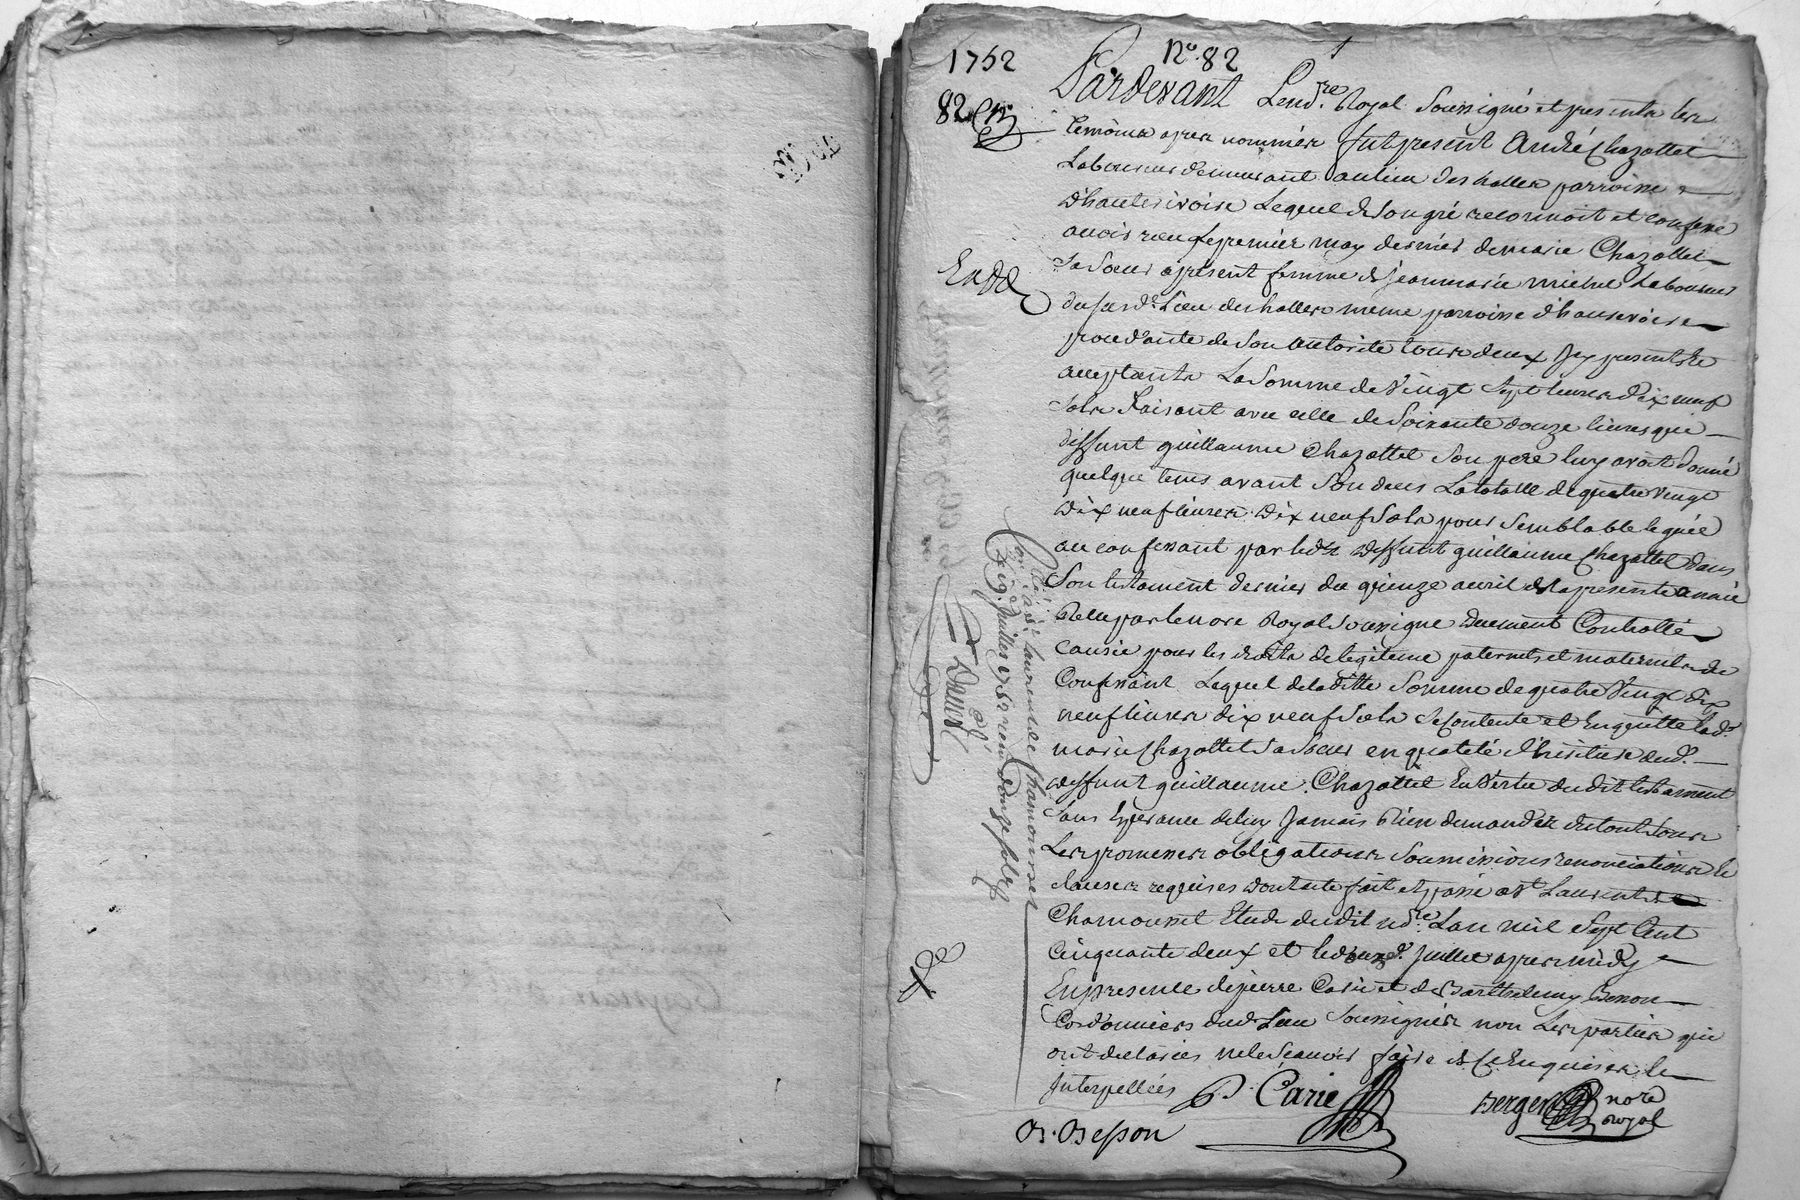 1752
No. 82
82
Pardevant Le nore. Royal Soussigné et presents les
temoins apres nommés fut present André Chazottel
Laboureur demeurant au lieu des halles parroisse
d'hauterivoire Lequel de Son gré reconnoit et confesse
avoir reçu le premier may dernier de marie Chazottel
Sa Soeur apresent femme de Jeanmarie michel Laboureur
dususd. Lieu des halles meme parroisse d'hauterivoire
procedante de Son Autorité tous deux Icy presents et
acceptants La Somme de Vingt Sept livres Dix neuf
Sols Faisant avec celle de Soixante douze livres que
deffunt guillaume Chazottel Son pere luy avoit donné
quelque tems avant Son deces La totalle de quatre Vingt
Dix neuf livres Dix neuf Sols pour Semblable leguée
au confessant par led. deffunt guillaume Chazottel dans
Son testament dernier du quinze avril de la presente année
Recu par le nore Royal Soussigné duement Controllé
causée pour les droits de legitime paternels et maternels du
Confessant Lequel de laditte Somme de quatre Vingt dix
neuf livres dix neuf Sols Se Contente et En quitte lad.
marie Chazottel Sa Soeur en qualité d'heritiere dud.
deffunt guillaume Chazottel En Vertu du dit testament
Sans Esperance de luy Jamais Rien demander du tout Sous
Les promesses obligations Soumissions renonciations et
clauses requises dont acte fait et passé a St Laurent de
Chamousset Etude du dit nore. L'an mil Sept Cent
Cinquante deux et le douze. Juillet apres midy
En presence de pierre Carie et de Barthelemy Besson
Cordonniers dud. Lieu Soussignés non Les parties qui
ont declarées ne le Scavoir faire de Ce Enquises et
Interpellées
P. Carie
Berger nore
royal
B. Besson
Exdd
Con.lé a St laurent de Chamousset
le 19 Juillet 1752 recu douze sols